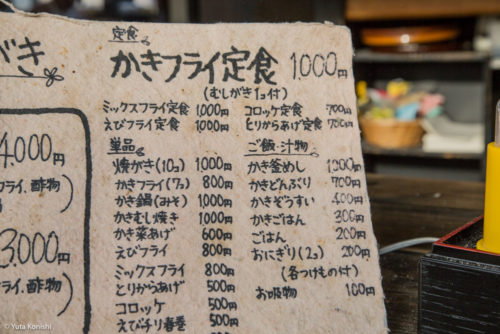 がき
4,000円
フライ、酢物
3,000円
フライ、酢物
定食
かきフライ定食 1000円
(むしがき1コ付)
ミックスフライ定食 1,000円
えびフライ定食 1000円
コロッケ定食 700円
とりからあげ定食 700円
単品
焼がき(10コ) 1000円
かきフライ(7コ) 800円
かき鍋(みそ) 1,000円
かきむし焼き 1000円
かき菜あげ 600円
えびフライ 800円
ミックスフライ 800円
とりからあげ 500円
コロッケ 500円
えびチリ春巻 500円
ご飯・汁物
かき釜めし
かきどんぶり 700円
かきぞうすい 400円
かきごはん 300円
ごはん 200円
おにぎり(2コ) 200円
(各つけもの付)
お吸物 100円
© Yuta Konishi